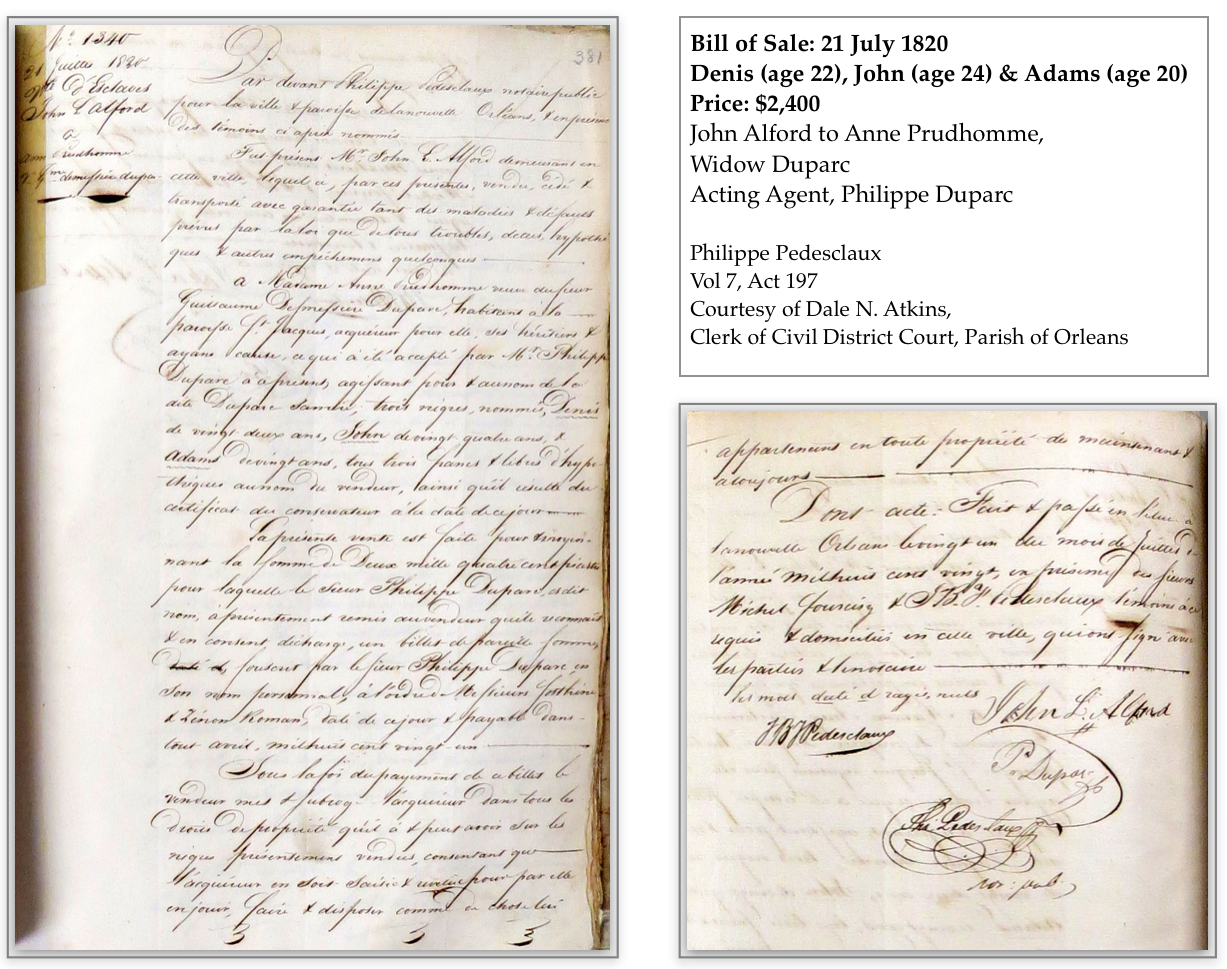 Nº 1340
21 Juillet 1820
Vte D'Esclaves
John L Alford
a
ann Prudhomme
Ve Gme demessiere dupar
381
Par devant Philippe Pedesclaux notaire public
pour la ville & paroisse de la nouvelle Orléans, & en presence
des témoins ci apres nommés
Fut présent Mr. John L. Alford demeurant en
cette ville, lequel à, par ces présentes, vendu, cédé &
transporté avec garantie tant des maladies & défauts
prévus par la loi que de tous troubles, dettes, hypothe
ques & autres empéchemens quelconques
a Madame Anne Prudhomme veuve du feur
Guillaume Demessiere Duparc, habitant à la
paroisse St. Jacques, acquéreur pour elle, ses héritiers &
ayans cause, ce qui à été accepté par Mr. Philippe
Duparc à ce présent, agissant pour & au nom de la
dite Duparc sa mère, trois nègres, nommés, Denis
de vingt deux ans, John de vingt quatre ans, &
Adams de vingt ans, tous trois francs & libres d'hypo-
thèques au nom du vendeur, ainsi qu'il résulte du
certificat du conservateur à la date de ce jour
La présente vente est faite pour & moyen-
nant la somme de Deux mille quatre cent piastres
pour laquelle le Sieur Philippe Duparc, es dit
nom, à présentement remis au vendeur qui le reconnait
& en consent décharge, un billet de pareille somme,
souscrit par le sieur Philippe Duparc, en
son nom personnel, à l'ordre de Messieurs
& Zénon Roman, daté de ce jour & payable dans
tout avril, mil huit cent vingt-un
Sous la foi du payement de ce billet le
vendeur met & subroge l'acquéreur dans tous les
droits de propriété qu'il à & peut avoir sur les
nègres présentement vendus, consentant que
l'acquéreur en soit saisie & revetue pour par elle
en jouir, faire & disposer comme de chose lui
Bill of Sale: 21 July 1820
Denis (age 22), John (age 24) & Adams (age 20)
Price: $2,400
John Alford to Anne Prudhomme,
Widow Duparc
Acting Agent, Philippe Duparc
Philippe Pedesclaux
Vol 7, Act 197
Courtesy of Dale N. Atkins,
Clerk of Civil District Court, Parish of Orleans
appartenant en toute propriété de maintenant &
a toujours
Dont acte. Fait & passé en l'étude à
la nouvelle Orleans le vingt un du mois de Juillet de
l'année mil huit cent vingt, en présence des sieurs
Michel Fourcisy & J. B. F. Pedesclaux témoins à ce
requis & domiciliés en cette ville, qui ont signé avec
les parties & le notaire
les mots daté d rayés, nuls
John L. Alford
JBF Pedesclaux
P. Duparc
Phi Pedesclaux
not: pub.